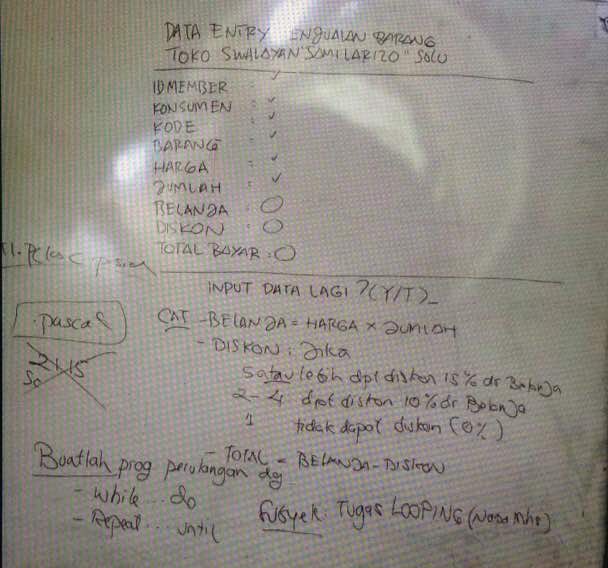 DATA ENTRY ENJUALAN BARANG
TOKO SWALAYAN "SAMILARIZO" SOLU
IDMEMBER :
KONSUMEN :
KODE :
BARANG :
HARGA :
JUMLAH :
BELANJA : O
DISKON : O
TOTAL BAYAR : O
INPUT DATA LAGI ?(Y/T)_
.pascal
21.15
50
CAT - BELANJA = HARGA x JUMLAH
- DISKON : Jika
5 atau lebih dpt diskon 15% dr Belanja
2 - 4 dpt diskon 10% dr Belanja
1 tidak dapat diskon (0%)
- TOTAL = BELANJA - DISKON
Buatlah prog perulangan dg
- While ... do
- Repeat ... until
Subyek : Tugas LOOPING (Nama Mhs)